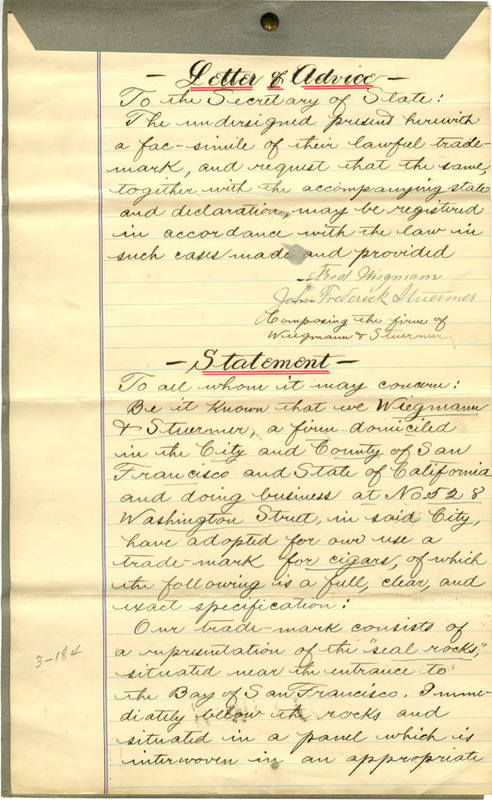 — Letter of Advice —
To the Secretary of State:
The undersigned present herewith
a fac-simile of their lawful trade-
mark, and request that the same,
together with the accompanying state
and declaration, may be registered
in accordance with the law in
such cases made and provided
Fred Wiegmann
John Frederick Stuermer
Composing the firm of
Wiegmann & Stuermer.
— Statement —
To all whom it may concern:
Be it Known that we Wiegmann
& Stuermer, a firm domiciled
in the City and County of San
Francisco and State of California
and doing business at No 528
Washington Street, in said City,
have adopted for our use a
trade-mark for cigars, of which
the following is a full, clear, and
exact specification:
Our trade-mark consists of
3-184
a representation of the "seal rocks,"
situated near the entrance to
the Bay of San Francisco. Imme-
diately below the rocks and
situated in a panel which is
interwoven in an appropriate